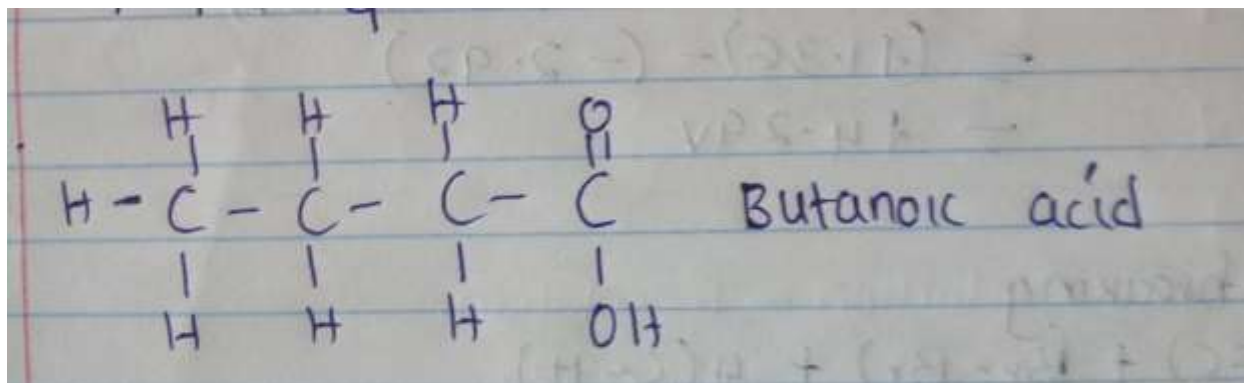 H H H O
H - C - C - C - C Butanoic acid
H H H OH